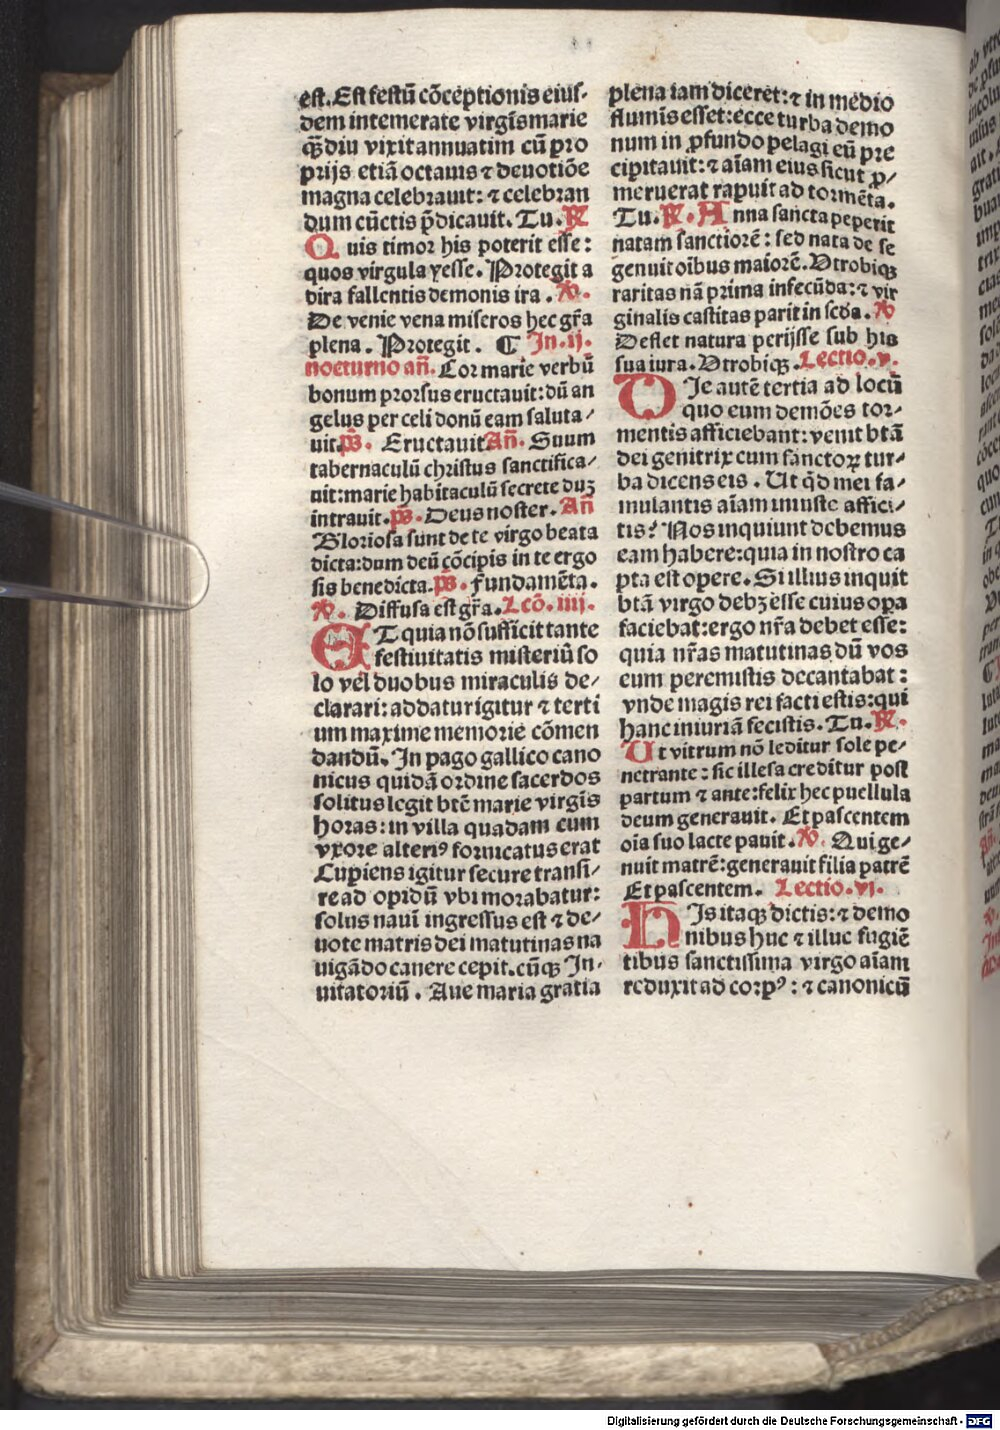 est. Est festū cōceptionis eius-
dem intemerate virgīs marie
q̄ȝdiu vixit annuatim cū pro
prijs etiā octauis ⁊ deuotiōe
magna celebrauit: ⁊ celebran
dum cūctis p̄dicauit. Tu. ℟
Quis timor his poterit esse:
quos virgula yesse. Protegit a
dira fallentis demonis ira. ℣.
De venie vena miseros hec gr̄a
plena. Protegit. ¶ In .ij.
nocturno an̄. Cor marie verbū
bonum prorsus eructauit: dū an
gelus per celi donū eam saluta-
uit. ps̄. Eructauit An̄. Suum
tabernaculū christus sanctifica-
uit: marie habitaculū secrete duȝ
intrauit. ps̄. Deus noster. An̄
Gloriosa sunt de te virgo beata
dicta: dum deū cōcipis in te ergo
sis benedicta. ps̄. Fundamēta.
℣. Diffusa est gr̄a. Lcō. iiij.
ET quia nō sufficit tante
festiuitatis misteriū so
lo vel duobus miraculis de-
clarari: addatur igitur ⁊ terti
um maxime memorie cōmen
dandū. In pago gallico cano
nicus quidā ordine sacerdos
solitus legit btē marie virgīs
horas: in villa quadam cum
vxore alteriꝰ fornicatus erat
Cupiens igitur secure transi-
re ad opidū vbi morabatur:
solus nauī ingressus est ⁊ de-
uote matris dei matutinas na
uigādo canere cepit. cūqȝ In-
uitatoriū. Aue maria gratia
plena iam diceret: ⁊ in medio
flumīs esset: ecce turba demo
num in ꝓfundo pelagi eū pre
cipitauit: ⁊ aīam eius sicut ꝓ-
meruerat rapuit ad tormēta.
Tu. ℟. Anna sancta peperit
natam sanctiorē: sed nata de se
genuit oībus maiorē. Vtrobiqȝ
raritas nā prima infecūda: ⁊ vir
ginalis castitas parit in scd̄a. ℣
Deflet natura perijsse sub his
sua iura. Vtrobiqȝ. Lectio .v.
Die autē tertia ad locū
quo eum demōes tor-
mentis afficiebant: venit btā
dei genitrix cum sanctoꝝ tur-
ba dicens eis. Ut qd̄ mei fa-
mulantis aīam iniuste affici-
tis? Nos inquiunt debemus
eam habere: quia in nostro ca
pta est opere. Si illius inquit
btā virgo debȝ esse cuius oꝑa
faciebat: ergo nr̄a debet esse:
quia nr̄as matutinas dū vos
eum peremistis decantabat:
vnde magis rei facti estis: qui
hanc iniuriā fecistis. Tu. ℟.
Ut vitrum nō leditur sole pe-
netrante: sic illesa creditur post
partum ⁊ ante: felix hec puellula
deum generauit. Et pascentem
oīa suo lacte pauit. ℣. Qui ge-
nuit matrē: generauit filia patrē
Et pascentem. Lectio .vj.
HIs itaqȝ dictis: ⁊ demo
nibus huc ⁊ illuc fugiē
tibus sanctissima virgo aīam
reduxit ad corpꝰ: ⁊ canonicū
Digitalisierung gefördert durch die Deutsche Forschungsgemeinschaft - DFG